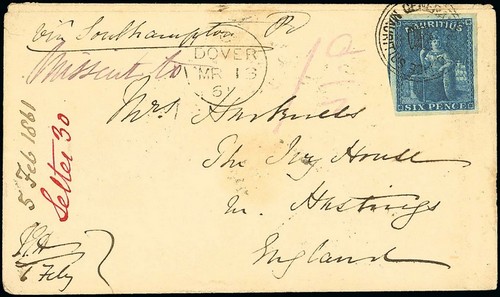 via Southampton
Missent to
DOVER
MR 13
61
MAURITIUS
SIX PENCE
Mrs Harkness
The Ivy House
nr. Hastings
England
5 Feb 1861
Letter 30
6 Feby